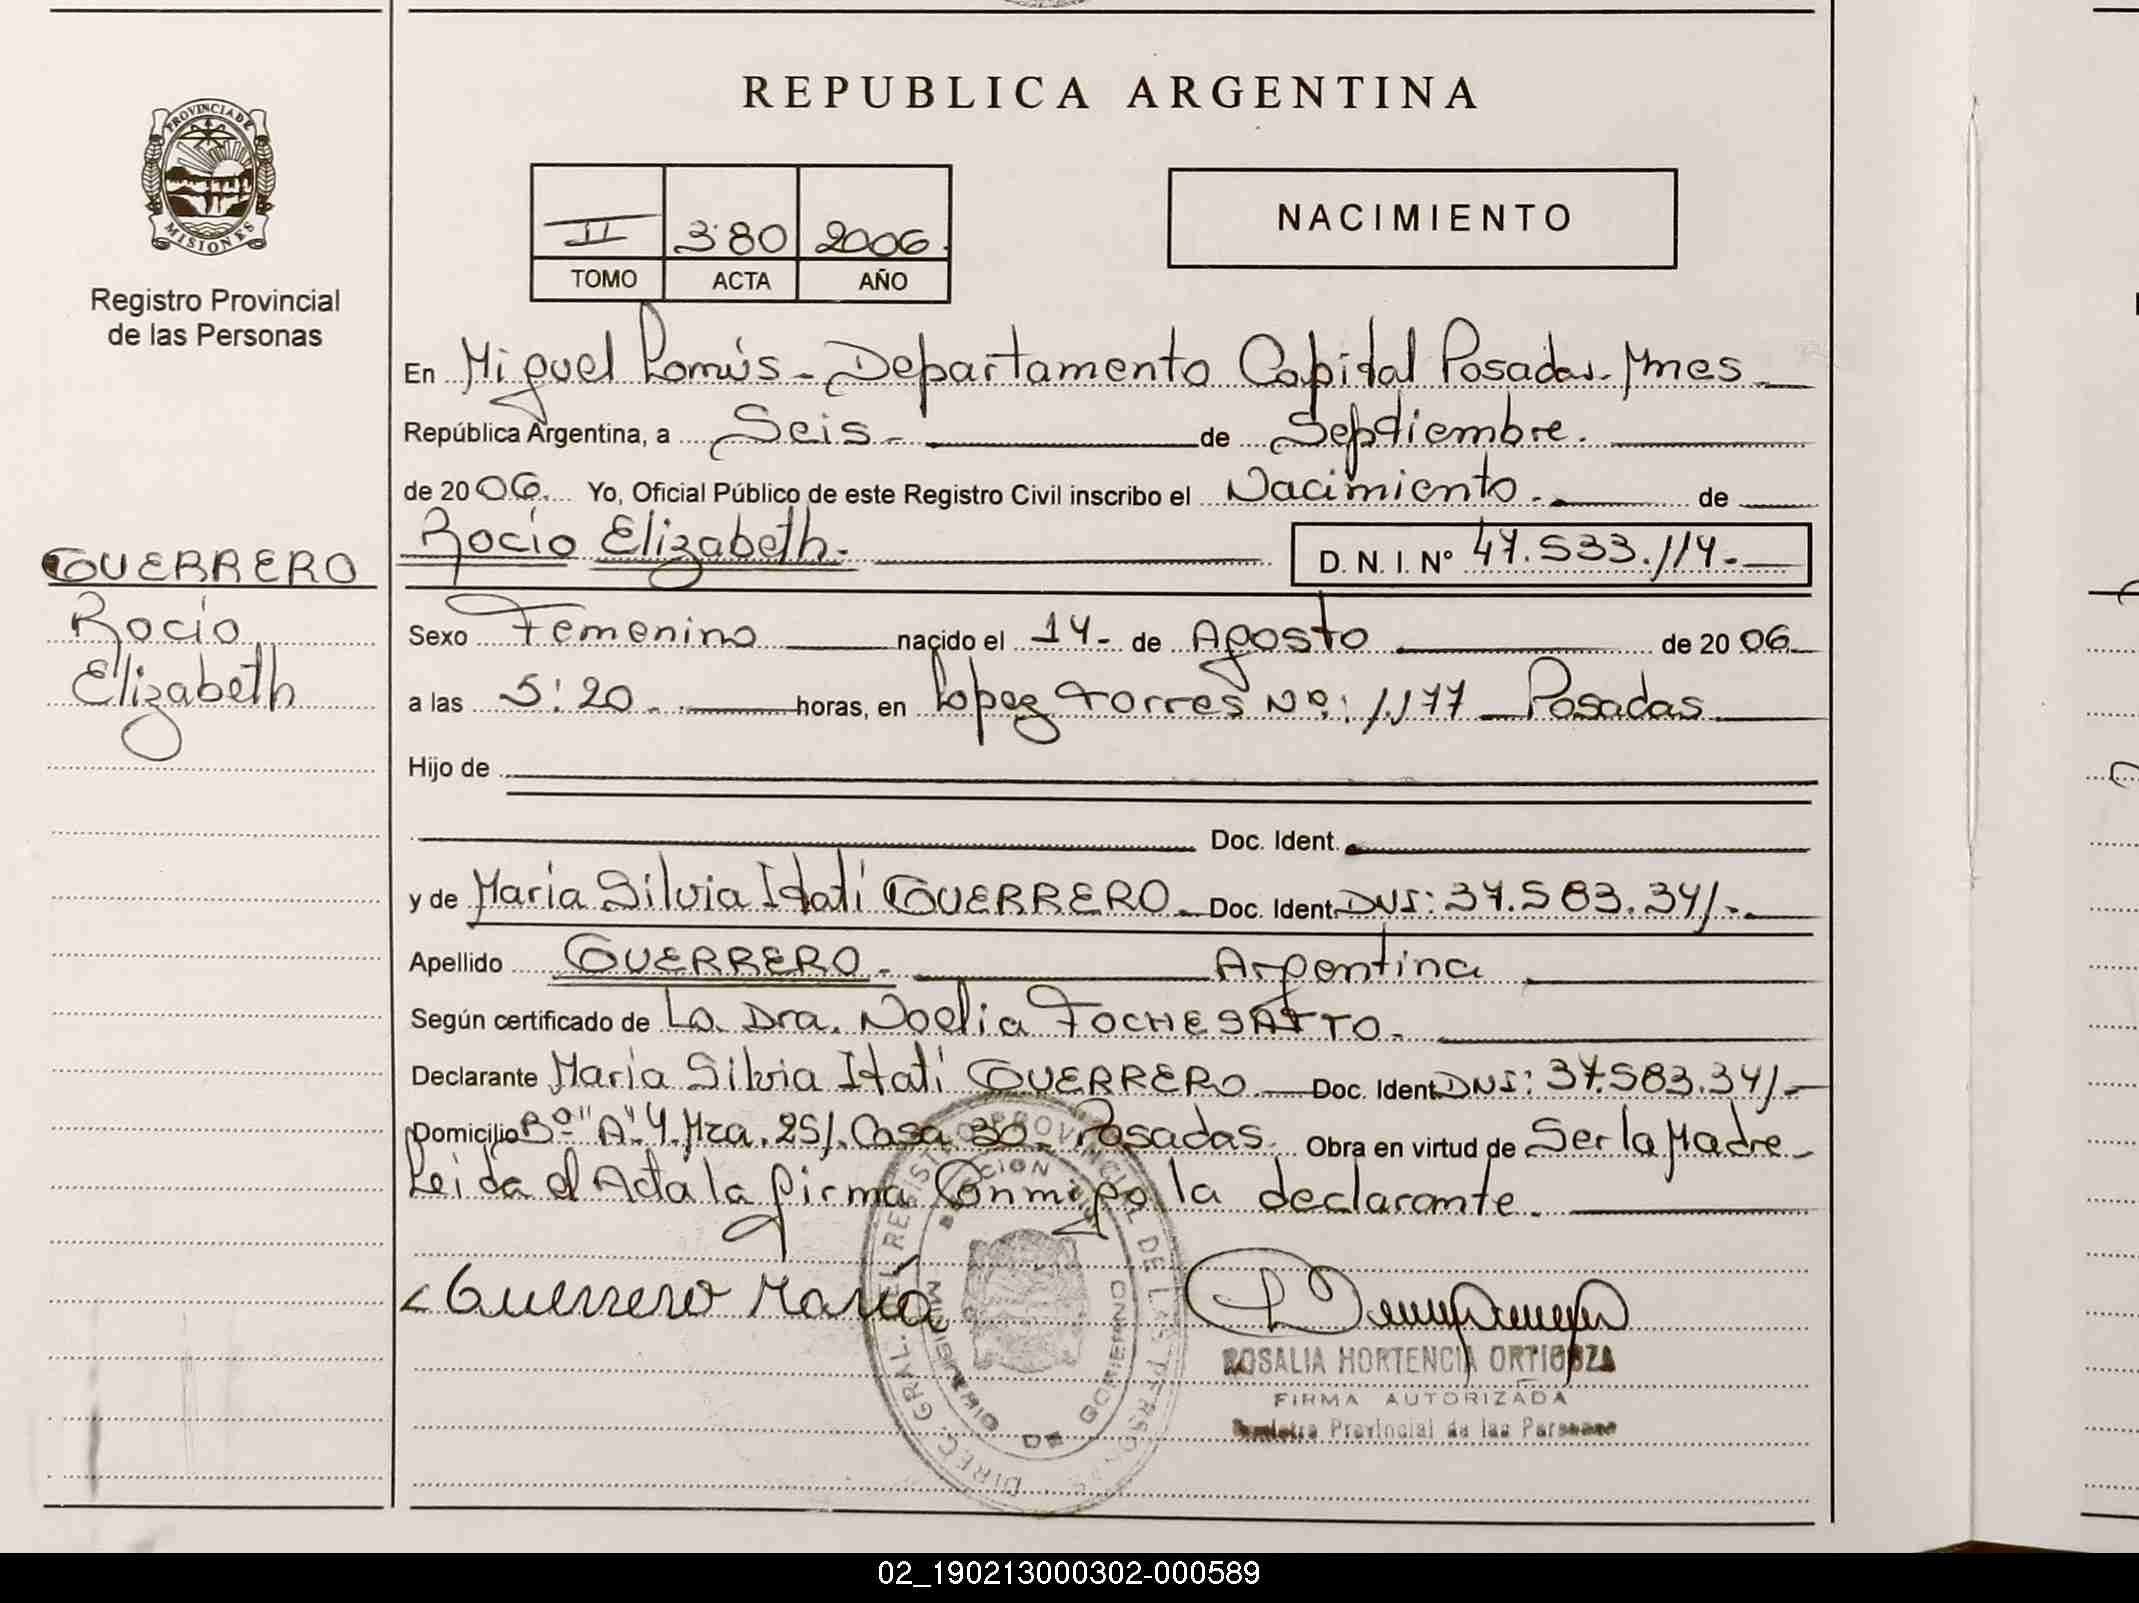 REPUBLICA ARGENTINA
PROVINCIA DE MISIONES
Registro Provincial
de las Personas
II 380 2006.
TOMO ACTA AÑO
NACIMIENTO
En Miguel Lanús - Departamento Capital Posadas. Mnes
República Argentina, a Seis - de Septiembre.
de 2006. Yo, Oficial Público de este Registro Civil inscribo el Nacimiento. de
Rocío Elizabeth. D. N. I. Nº 47.533.114.-
GUERRERO
Rocío
Elizabeth
Sexo Femenino nacido el 14- de Agosto de 2006
a las 5:20 horas, en Lopez Torres Nº: 1.177 Posadas
Hijo de
Doc. Ident.
y de María Silvia Itatí GUERRERO. Doc. Ident. DNI: 37.583.341.-
Apellido GUERRERO. Argentina
Según certificado de La Dra. Noelia TOCHESATTO.
Declarante María Silvia Itatí GUERRERO Doc. Ident. DNI: 37.583.341.-
Domicilio Bº "A" 4. Mza. 251. Casa 30. Posadas. Obra en virtud de Ser la Madre
Leida el Acta la firma Conmigo la declarante.
Guerrero María
ROSALIA HORTENCIA ORTIGOZA
FIRMA AUTORIZADA
Registro Provincial de las Personas
DIREC. GRAL. DEL REGISTRO PROVINCIAL DE LAS PERSONAS
MINISTERIO DE GOBIERNO
02_190213000302-000589